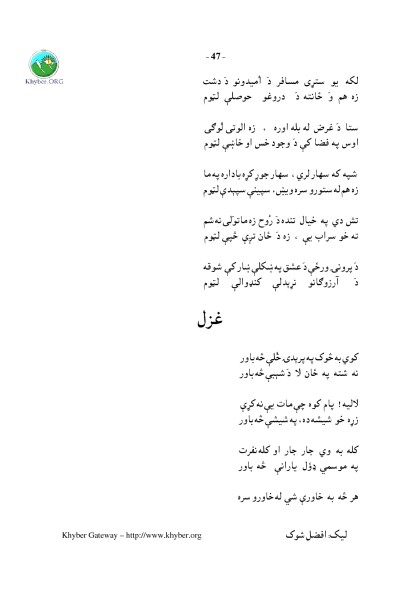 - 47 -
Khyber.ORG
لکه يو ستړی مسافر دَ اُميدونو دَ دشت
زه هم وَ ځانته دَ دروغو حوصلې لټوم
ستا دَ غرض له بله اوره ، زه الوتی لوګی
اوس په فضا کې دَ وجود خس او خاڼې لټوم
شپه که سهار لري، سهار جوړ کړه باداره په ما
زه هم له ستورو سره ويښ، سپينې سپېدې لټوم
تش دي په خيال تنده دَ رُوح زه ماتولی نه شم
ته خو سراب يې ، زه دَ ځان تړې څپې لټوم
دَ پرونۍ ورځې دَ عشق په ښکلي ښار کې شوقه
دَ آرزوګانو نړېدلې کنډوالې لټوم
غزل
کوي به څوک په پردۍ څلې څه باور
نه شته په ځان لا دَ شېبې څه باور
لاليه! پام کوه چې مات يې نه کړې
زړه خو شيشه ده، په شيشې څه باور
کله به وي جار جار او کله نفرت
په موسمي ډوّل يارانې څه باور
هر څه به خاورې شي له خاورو سره
Khyber Gateway – http://www.khyber.org
ليک: افضل شوک